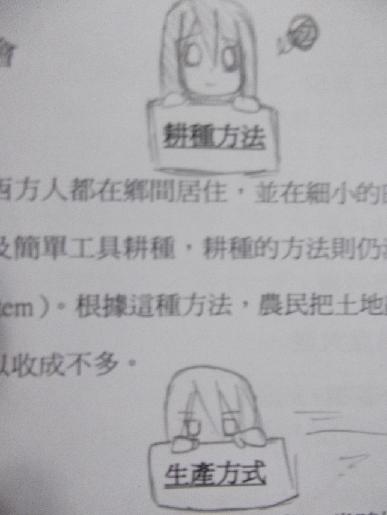 會
耕種方法
西方人都在鄉間居住，並在細小的
及簡單工具耕種，耕種的方法則仍
tem）。根據這種方法，農民把土地
以收成不多。
生產方式